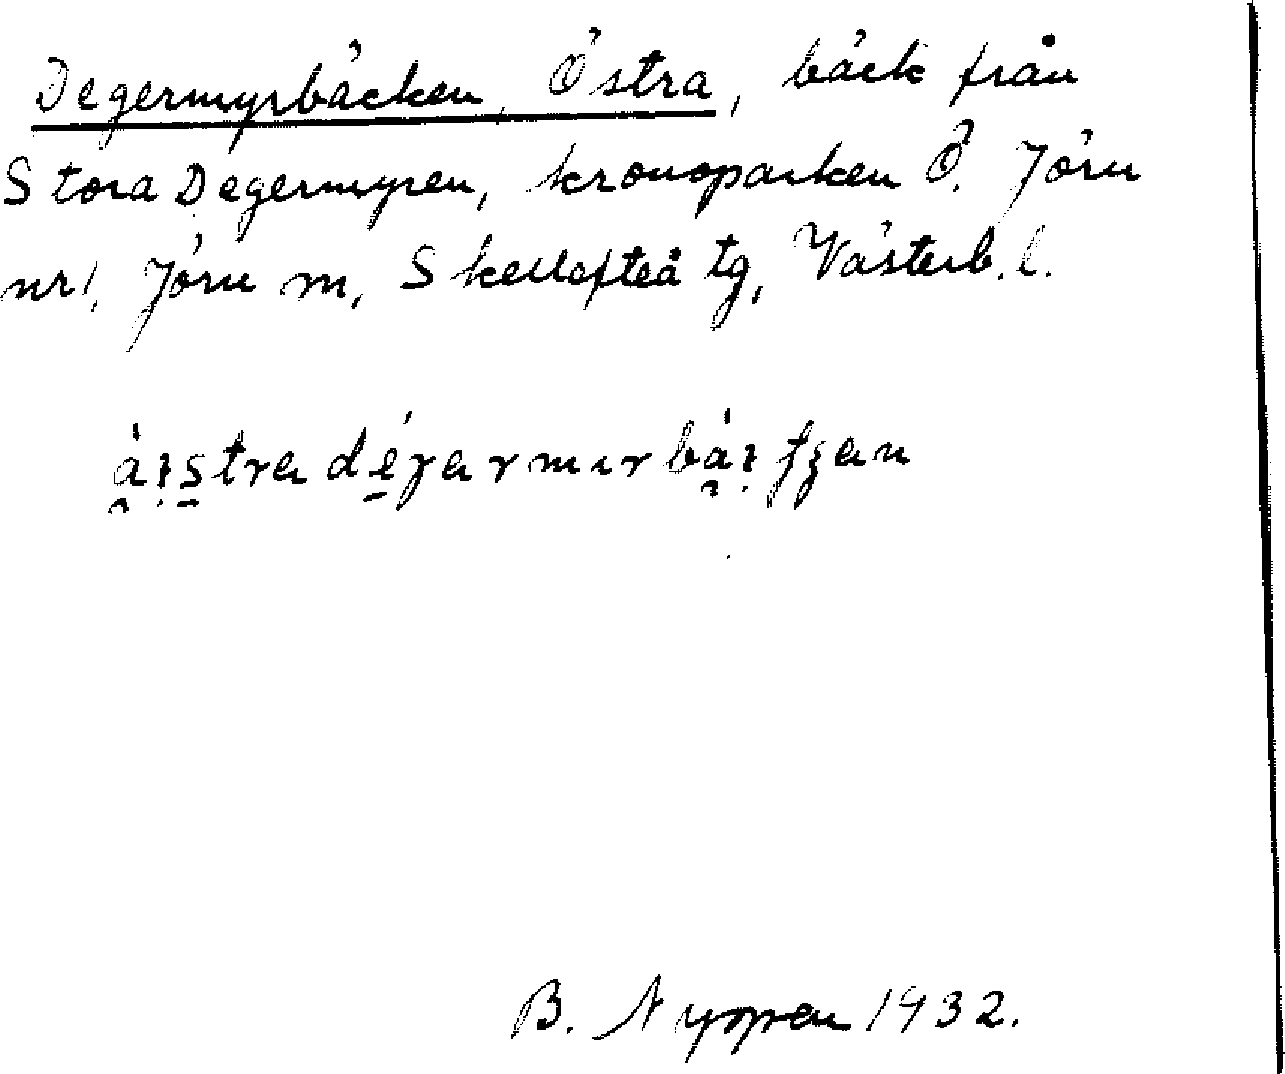 Degermyrbäcken, Östra, bäck från
Stora Degermyren, kronoparken Ö. Jörn
nr 1, Jörn sn, Skellefteå tg, Västerb. l.
B. Nyopen 1932.